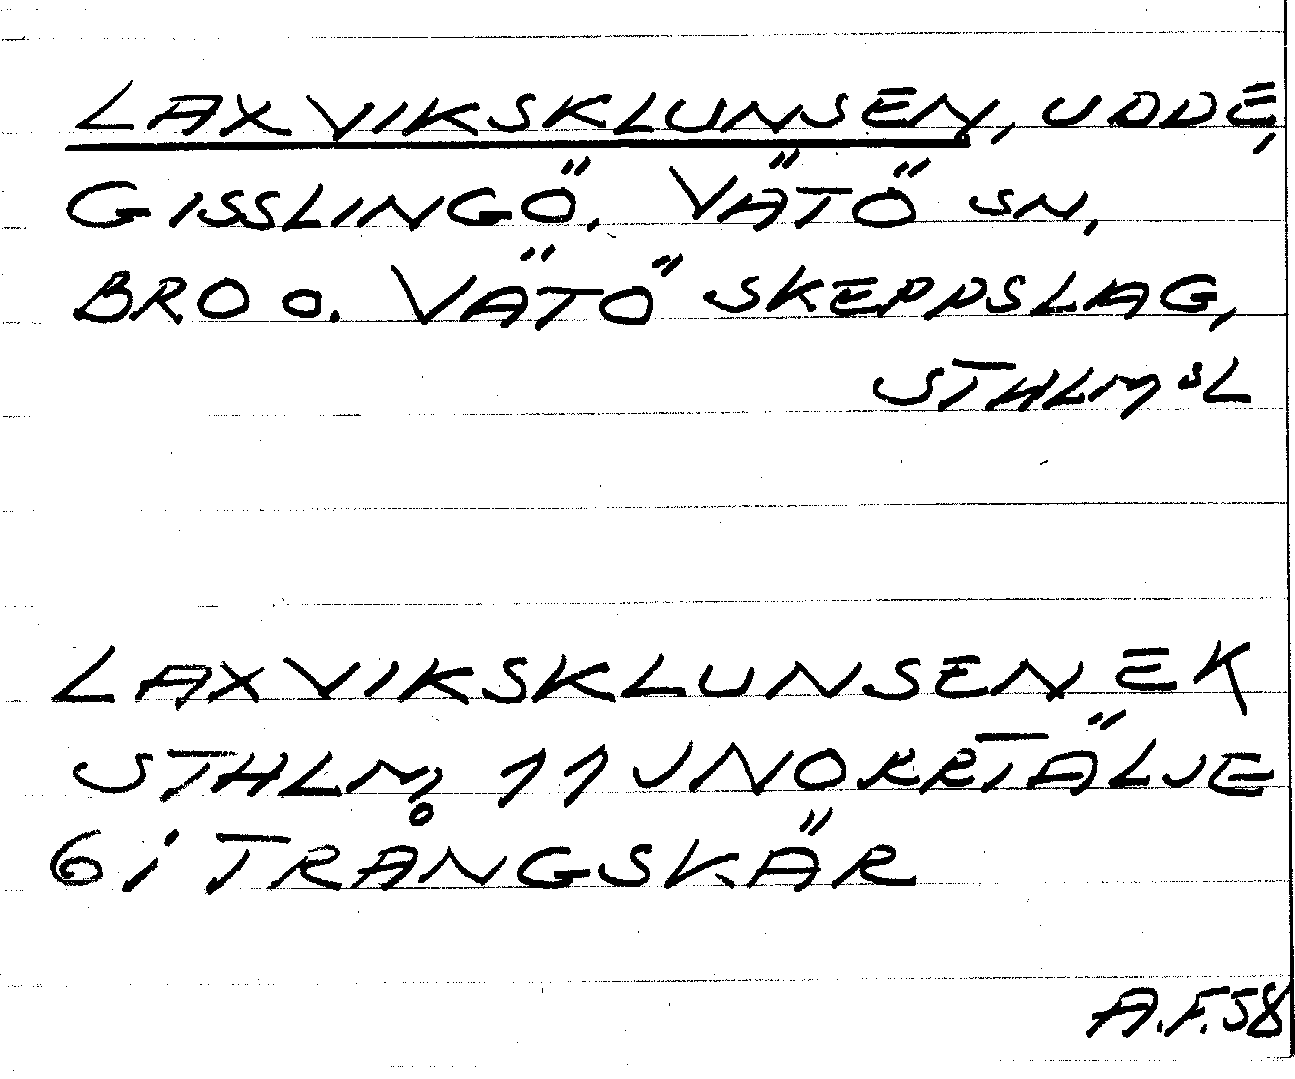 LAXVIKSKLUNSEN, UDDE,
GISSLINGÖ. VÄTÖ SN,
BRO O. VÄTÖ SKEPPSLAG,
STHLMSL
LAXVIKSKLUNSEN EK
STHLM, 11 JNORRTÄLJE
6 i TRÅNGSKÄR
A.F.58